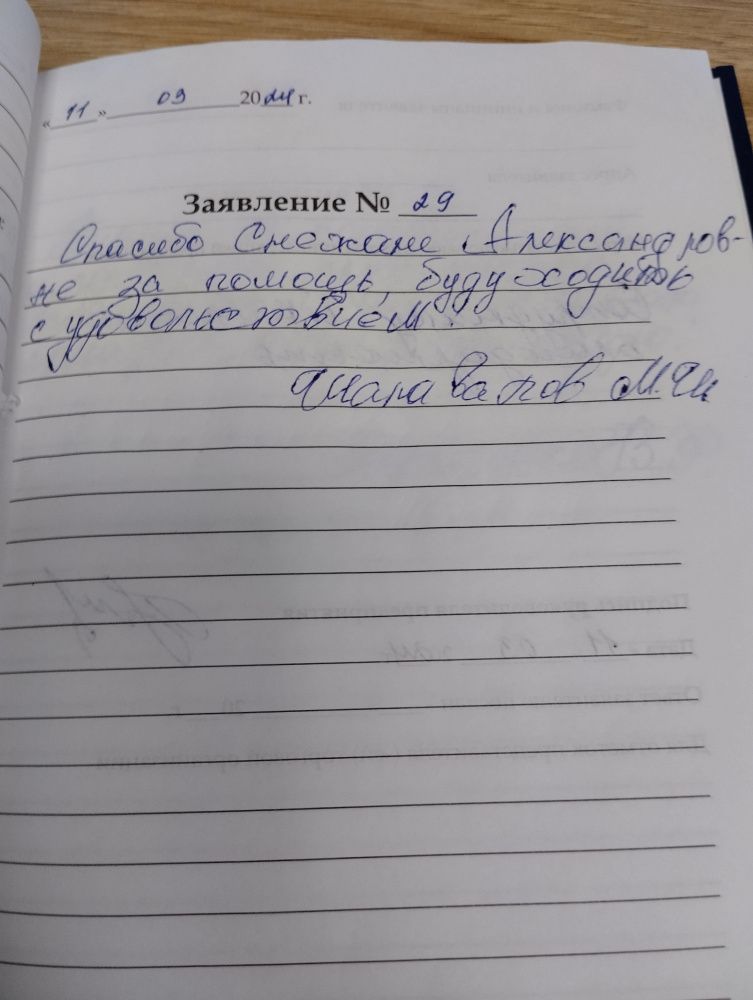 «11» 09 2024 г.
Заявление № 29
Спасибо Снежане Александров-
не за помощь, буду ходить
с удовольствием!